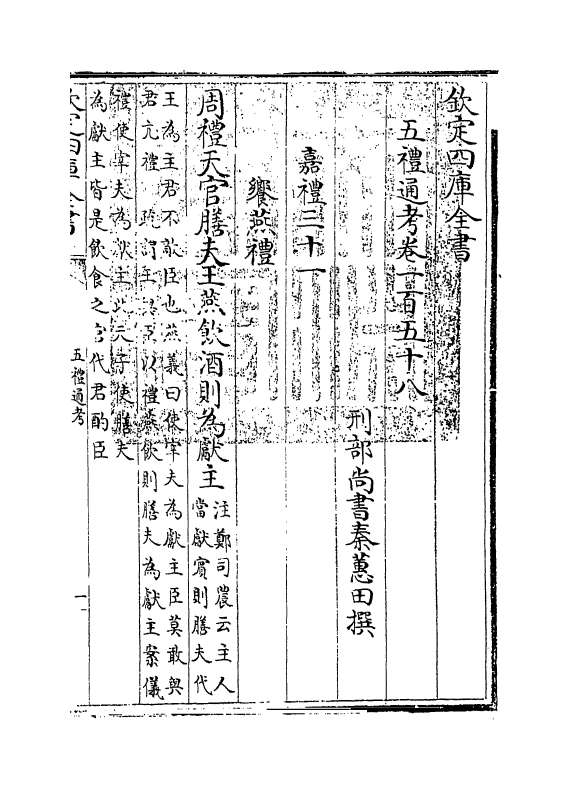 欽定四庫全書
五禮通考卷一百五十八
刑部尚書秦蕙田撰
嘉禮三十一
饗燕禮
周禮天官膳夫王燕飲酒則為獻主
注鄭司農云主人
當獻賓則膳夫代
王為主君不敵臣也燕義曰使宰夫為獻主臣莫敢與
君亢禮 疏謂王與臣以禮燕飲則膳夫為獻主案儀
禮使宰夫為獻主此天子使膳夫
為獻主皆是飲食之官代君酌臣
五禮通考
一